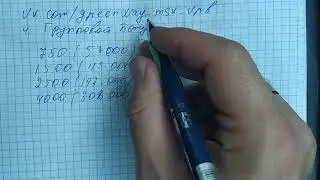 vk.com/greenway_msk_spb
4 Групповой бону
750 / 57000
1500 / 115000
2500 / 192000
4000 / 308000